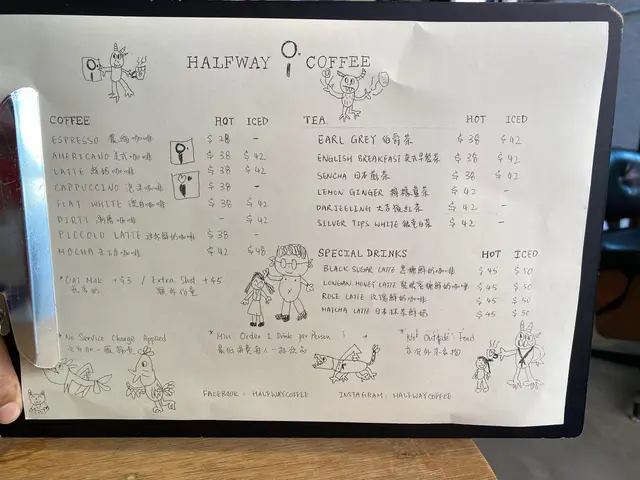 HALFWAY COFFEE
COFFEE HOT ICED
ESPRESSO 濃縮咖啡 $28 -
AMERICANO 美式咖啡 $38 $42
LATTE 鮮奶咖啡 $38 $42
CAPPUCCINO 泡沫咖啡 $38 -
FLAT WHITE 澳白咖啡 $38 $42
DIRTY 咖啡 - $42
PICCOLO LATTE 鮮奶咖啡 $38 -
MOCHA 咖啡 $42 $48
*Oat Milk +$3 / Extra Shot +$5
燕麥奶
TEA HOT ICED
EARL GREY 伯爵茶 $38 $42
ENGLISH BREAKFAST 英式早餐茶 $38 $42
SENCHA 日本煎茶 $38 $42
LEMON GINGER 檸檬薑茶 $42 -
DARJEELING 大吉嶺紅茶 $42 -
SILVER TIPS WHITE 銀毫白茶 $42 -
SPECIAL DRINKS HOT ICED
BLACK SUGAR LATTE 黑糖鮮奶咖啡 $45 $50
LONGAN HONEY LATTE 龍眼蜜糖鮮奶咖啡 $45 $50
ROSE LATTE 玫瑰鮮奶咖啡 $45 $50
MATCHA LATTE 日本抹茶鮮奶 $45 $50
*No Service Charge Applied
*Min Order 1 Drink per Person
*Not Outside Food
FACEBOOK: HALFWAYCOFFEE INSTAGRAM: HALFWAYCOFFEE